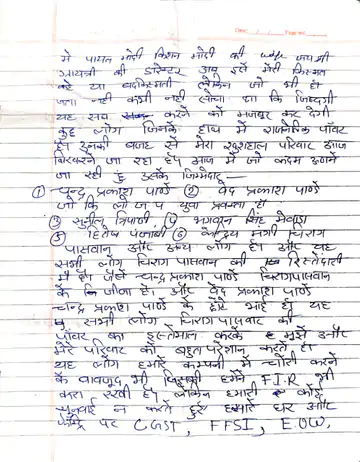 मे पायल मोदी किशन मोदी की wife जयश्री
गायत्री की डारेक्टर आज इसे मेरी किस्मत
कहे या बदकिस्मती लेकिन जो भी हो
पता नही कभी नही सोचा था कि जिन्दगी
यह सब करने को मजबूर कर देगी
कुछ लोग जिनके हाथ मे राजनैतिक पॉवर
है उनकी वजह से मेरा खुशहाल परिवार आज
बिखरने जा रहा है आज मे जो कदम उठाने
जा रही हूं उसके जिम्मेदार —
① चन्द्र प्रकाश पाण्डे ② वेद प्रकाश पाण्डे
जो कि लो ज प युवा प्रवक्ता है
③ सुनील त्रिपाठी ④ भगवान सिंह मेवाड़ा
⑤ हितेश पंजाबी ⑥ केन्द्रिय मंत्री चिराग
पासवान और अन्य लोग है। और यह
सभी लोग चिराग पासवान की रिस्तेदारी
मे है। जैसे चन्द्र प्रकाश पाण्डे चिराग पासवान
के जीजा है। और वेद प्रकाश पाण्डे
चन्द्र प्रकाश पाण्डे के छोटे भाई है। यह
सभी लोग चिराग पासवान की
पॉवर का इस्तेमाल करके मुझे और
मेरे परिवार को बहुत परेशान करते है।
यह लोग हमारे कम्पनी मे चोरी करने
के वावजूद भी जिसकी हमने F.I.R भी
करा रखी है। लेकिन हमारी कोई
सुनवाई न करते हुए हमारे घर और
फैक्ट्रि पर CGST, FFSI, E.O.W,